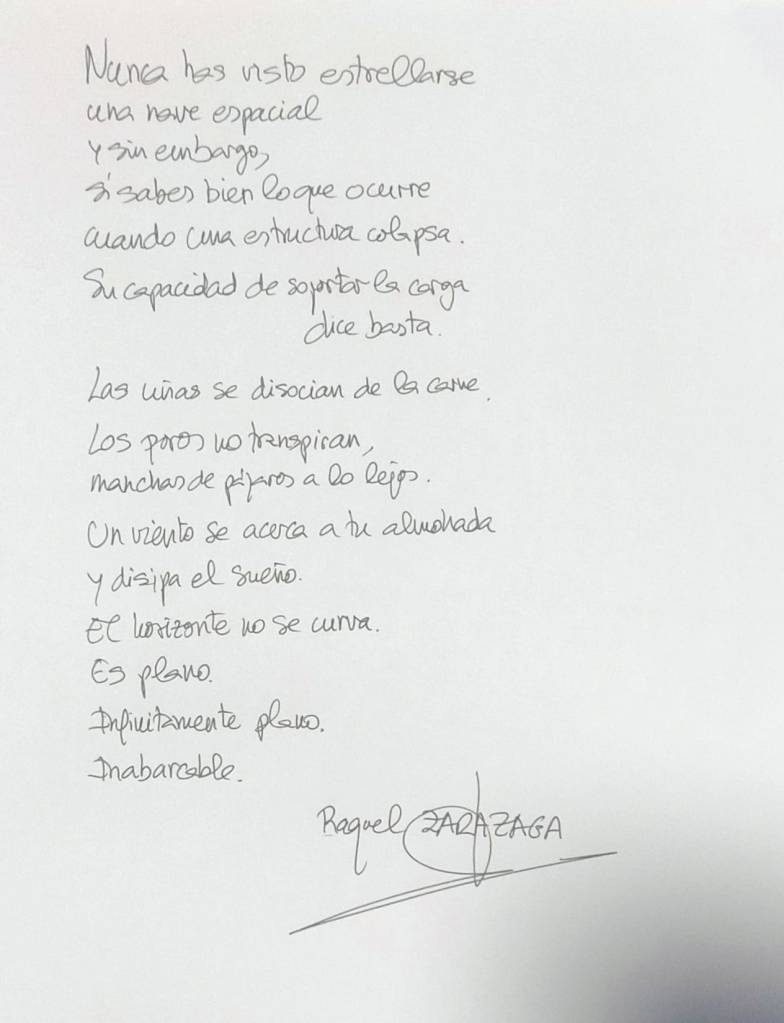 Nunca has visto estrellarse
una nave espacial
y sin embargo,
sí sabes bien lo que ocurre
cuando una estructura colapsa.
Su capacidad de soportar la carga
dice basta.
Las uñas se disocian de la carne.
Los poros no transpiran,
manchas de pájaros a lo lejos.
Un viento se acerca a tu almohada
y disipa el sueño.
El horizonte no se curva.
Es plano.
Infinitamente plano.
Inabarcable.
Raquel ZARAZAGA